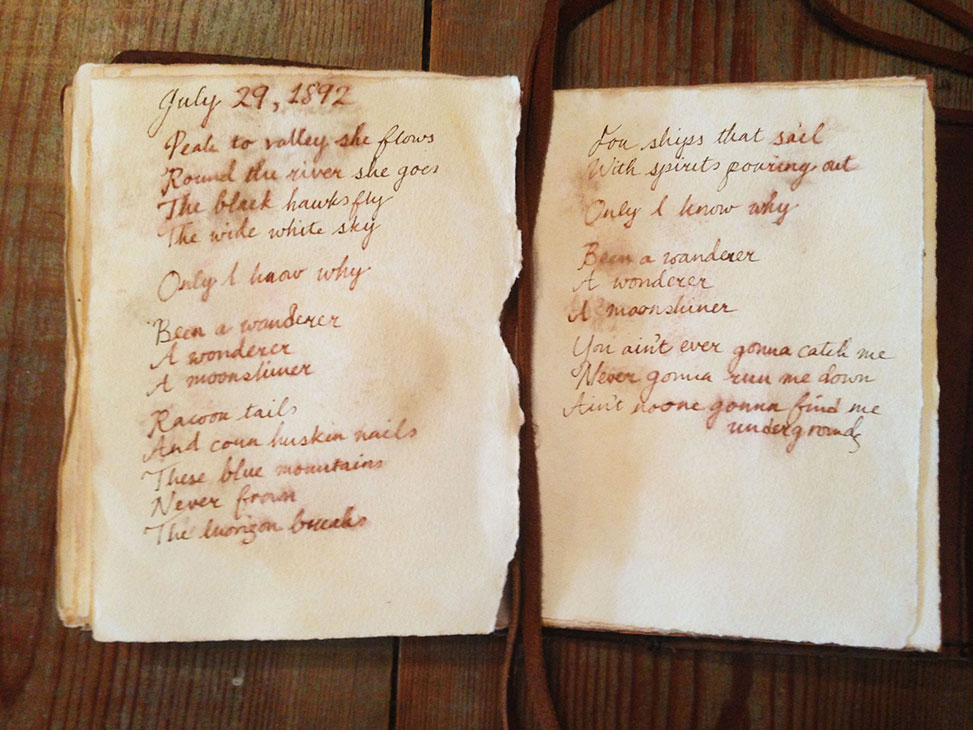 July 29, 1892
Peak to valley she flows
Round the river she goes
The black hawks fly
The wide white sky
Only I know why
Been a wanderer
A wonderer
A moonshiner
Racoon tails
And corn huskin nails
These blue mountains
Never frown
The horizon breaks
For ships that sail
With spirits pouring out
Only I know why
Been a wanderer
A wonderer
A moonshiner
You ain't ever gonna catch me
Never gonna run me down
Ain't noone gonna find me
underground